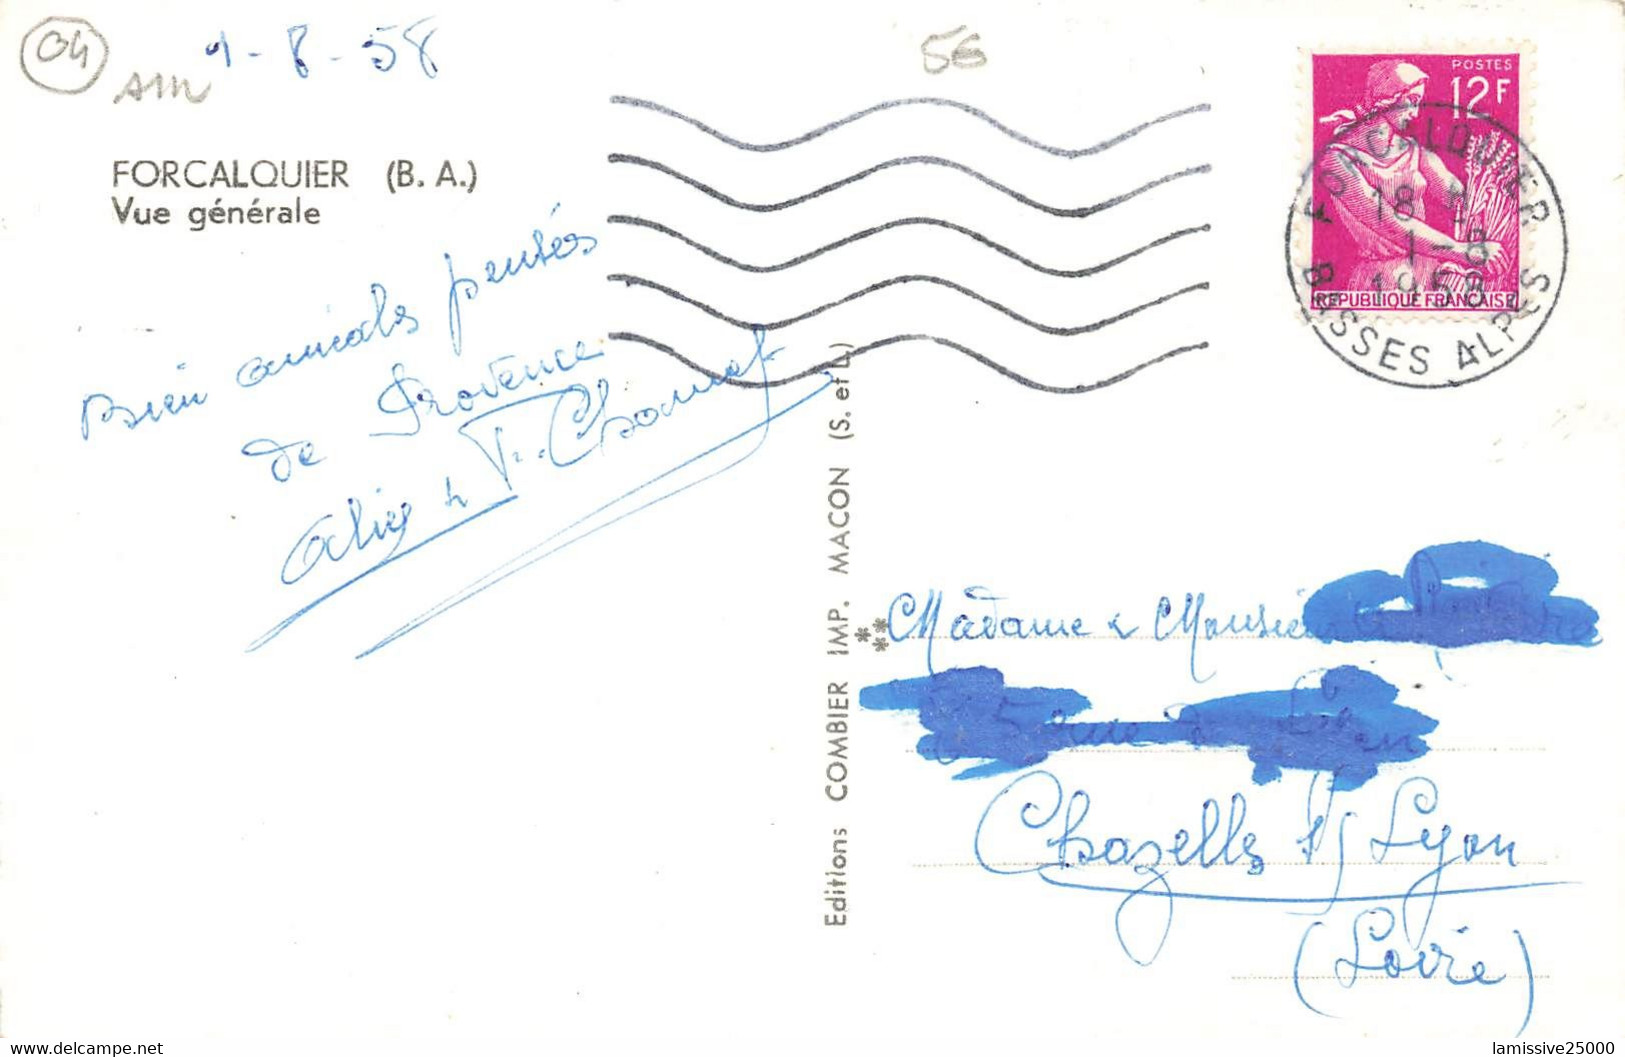 04
AM
1-8-58
56
FORCALQUIER (B. A.)
Vue générale
Bien amicales pensées
de Provence
POSTES
12F
REPUBLIQUE FRANÇAISE
FORCALQUIER
18 H
1-8
1958
BASSES ALPES
Editions COMBIER IMP. MACON (S. et L.)
Madame & Monsieur
rue
Chazelles s/ Lyon
(Loire)
lamissive25000